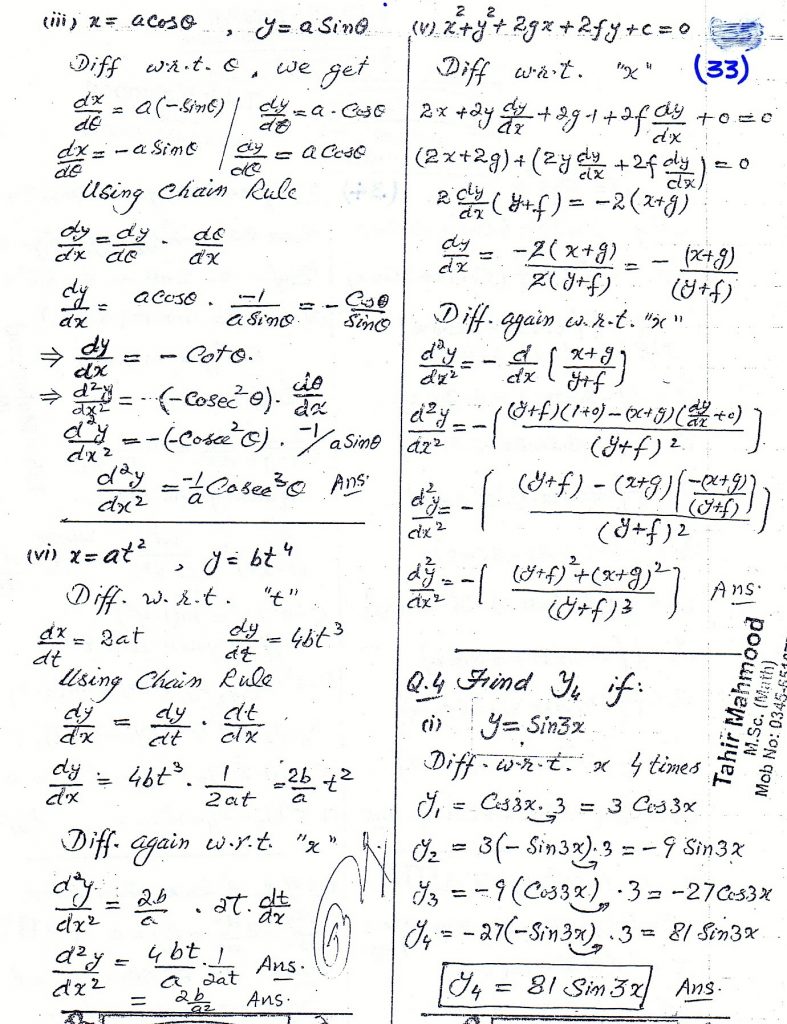 (iii) x = a cosθ , y = a Sinθ
Diff w.r.t. θ, we get
dx/dθ = a(-Sinθ) | dy/dθ = a · Cosθ
dx/dθ = -a Sinθ | dy/dθ = a Cosθ
Using Chain Rule
dy/dx = dy/dθ · dθ/dx
dy/dx = a cosθ · -1/a Sinθ = - Cosθ/Sinθ
⇒ dy/dx = - Cotθ.
⇒ d²y/dx² = -(-Cosec²θ) · dθ/dx
d²y/dx² = -(-Cosec²θ) · -1/a Sinθ
d²y/dx² = -1/a Cosec³θ Ans.
(vi) x = at² , y = bt⁴
Diff. w.r.t. "t"
dx/dt = 2at dy/dt = 4bt³
Using Chain Rule
dy/dx = dy/dt · dt/dx
dy/dx = 4bt³ · 1/2at = 2b/a t²
Diff. again w.r.t. "x"
d²y/dx² = 2b/a · 2t · dt/dx
d²y/dx² = 4bt/a · 1/2at Ans.
= 2b/a² Ans.
(v) x² + y² + 2gx + 2fy + c = 0
(33)
Diff w.r.t. "x"
2x + 2y dy/dx + 2g·1 + 2f dy/dx + 0 = 0
(2x+2g) + (2y dy/dx + 2f dy/dx) = 0
2 dy/dx (y+f) = -2(x+g)
dy/dx = -2(x+g)/2(y+f) = - (x+g)/(y+f)
Diff. again w.r.t. "x"
d²y/dx² = - d/dx [x+g/y+f]
d²y/dx² = -[(y+f)(1+0) - (x+g)(dy/dx + 0)/(y+f)²]
d²y/dx² = -[(y+f) - (x+g)[-(x+g)/(y+f)]/(y+f)²]
d²y/dx² = -[(y+f)² + (x+g)²/(y+f)³] Ans.
Q.4 Find y₄ if:
(i) y = Sin3x
Diff. w.r.t. x 4 times
y₁ = Cos3x · 3 = 3 Cos3x
y₂ = 3(-Sin3x)·3 = -9 Sin3x
y₃ = -9(Cos3x) · 3 = -27Cos3x
y₄ = -27(-Sin3x) · 3 = 81 Sin3x
y₄ = 81 Sin3x Ans.
Tahir Mahmood
M.Sc. (Math)
Mob No: 0345-